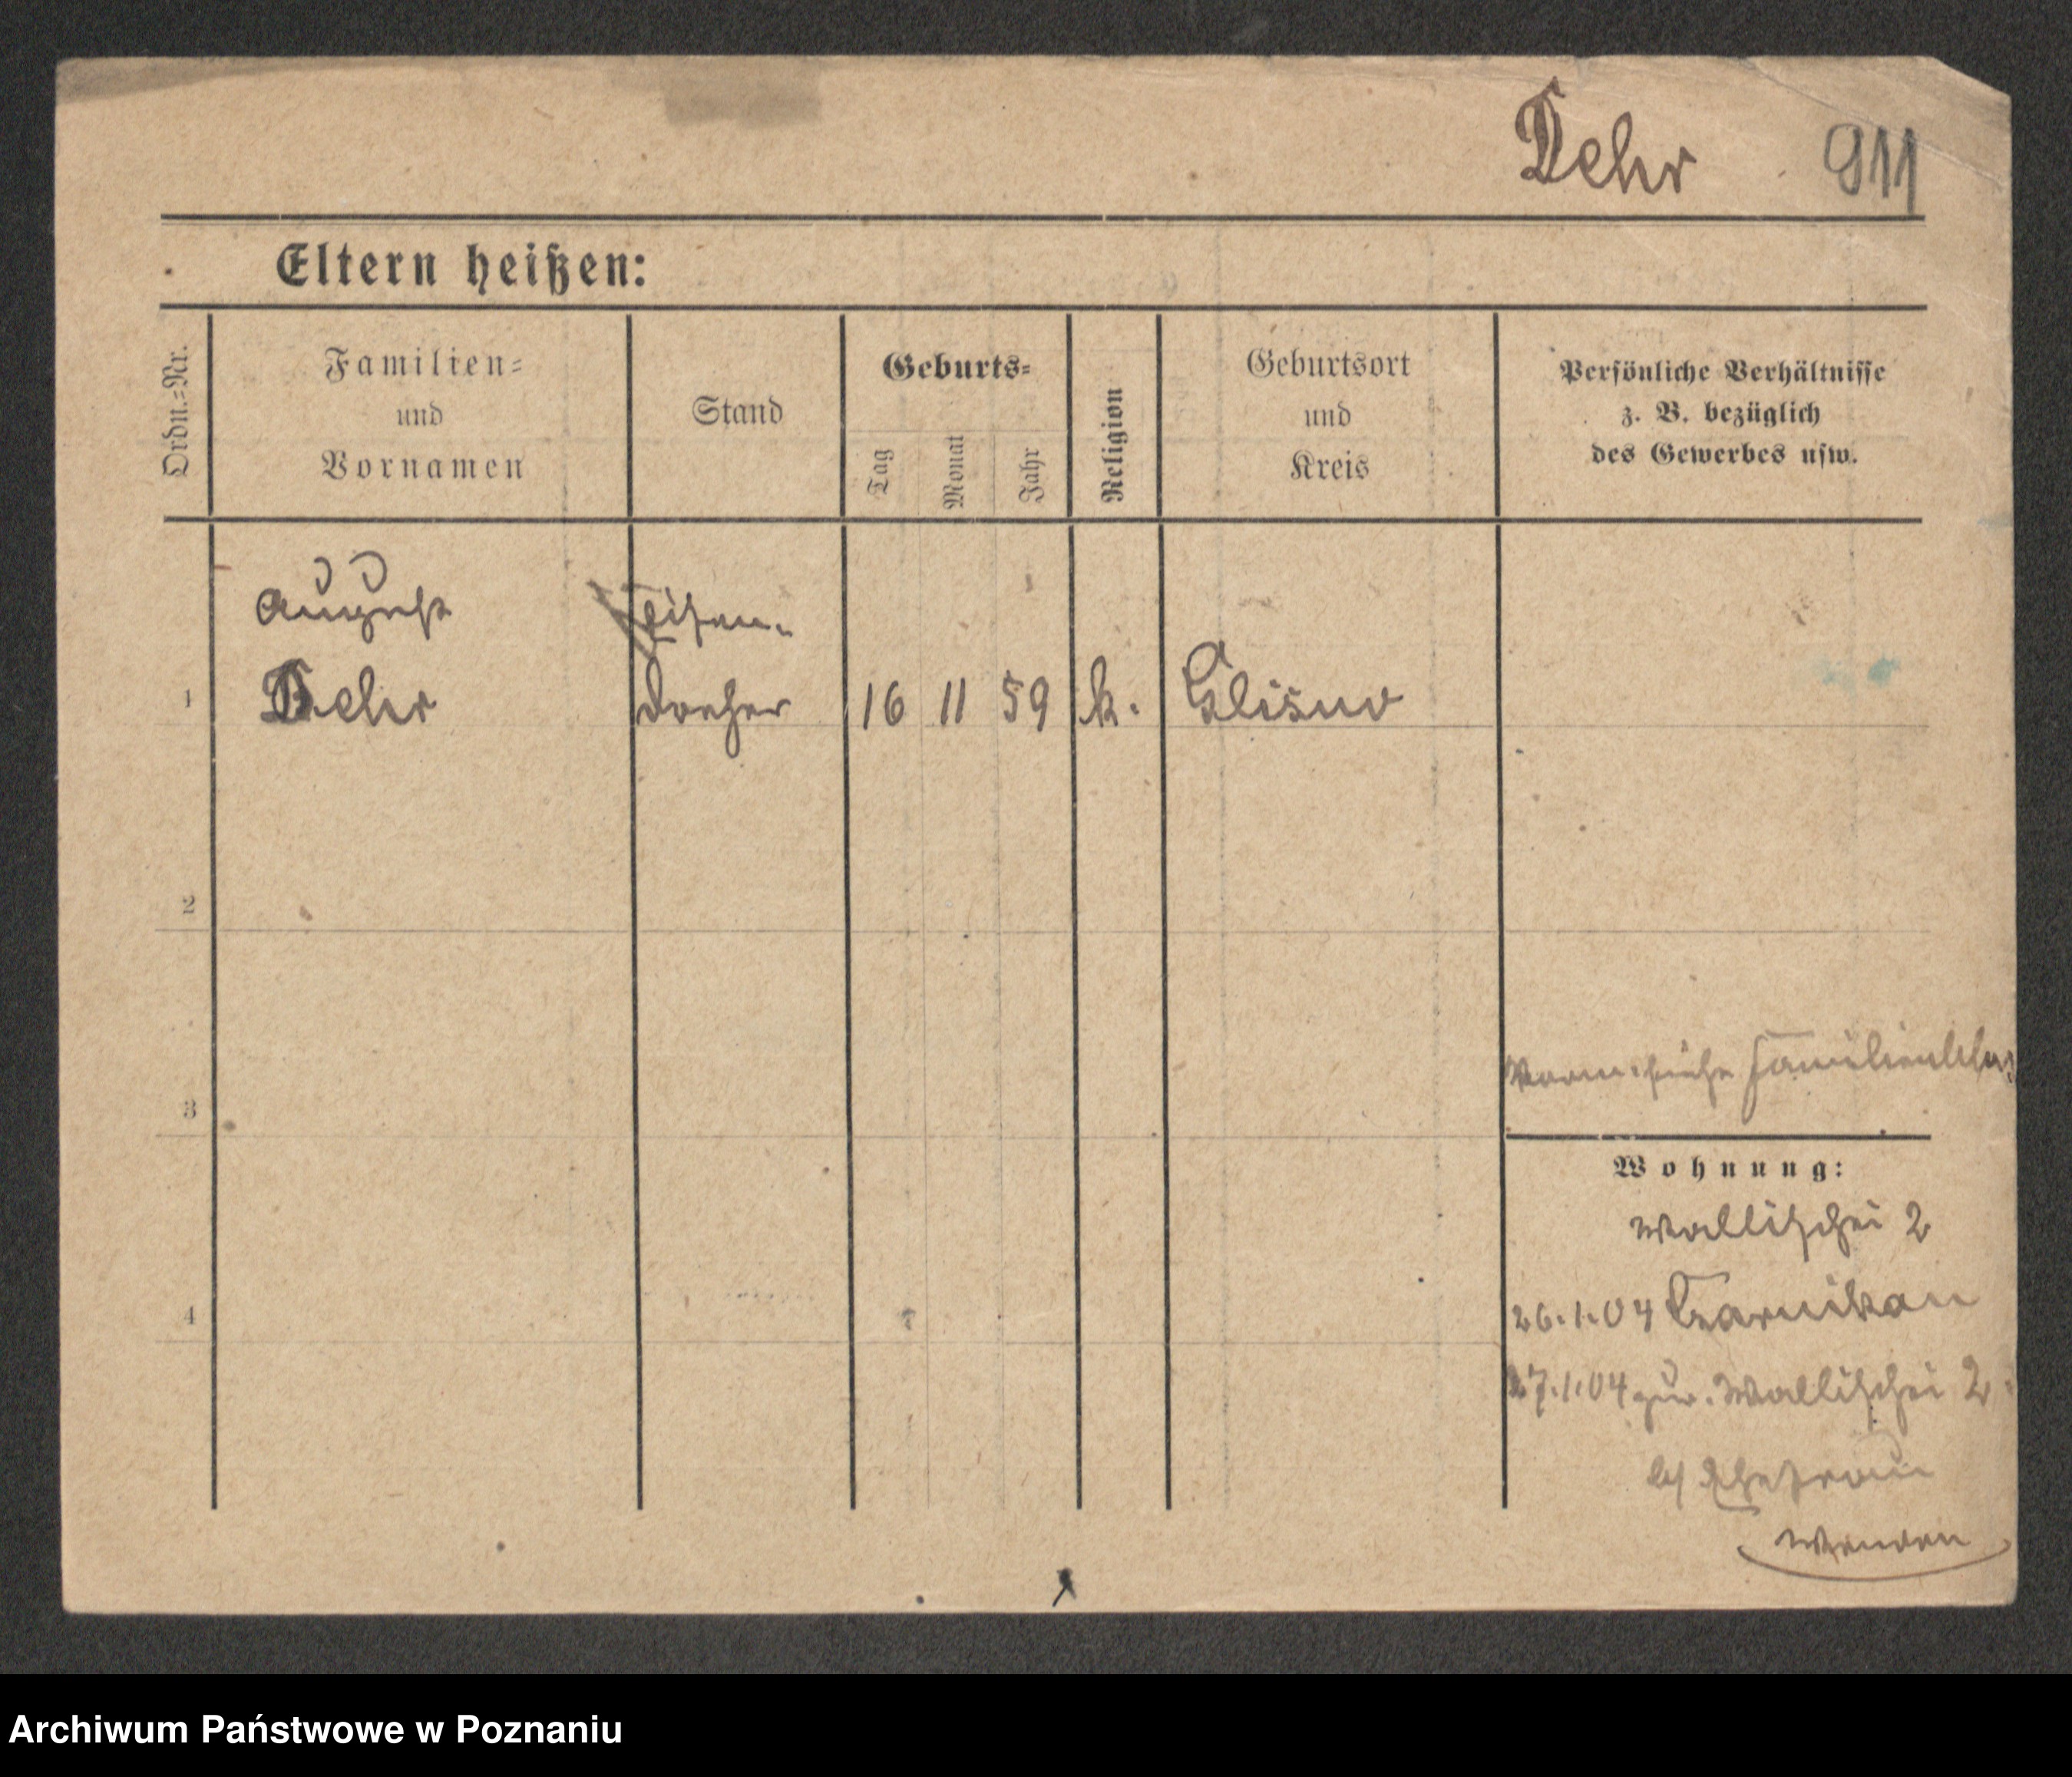 Dehr 911
Eltern heißen:
Ordn.-Nr.
Familien-
und
Vornamen
Stand
Geburts-
Tag
Monat
Jahr
Religion
Geburtsort
und
Kreis
Persönliche Verhältnisse
z. B. bezüglich
des Gewerbes usw.
August Eisen-
1 Dehr dreher 16 11 59 k. Glisno
2
3
siehe
Wohnung:
Wallischei 2
4
26.1.04 Czarnikau
27.1.04 zur. Wallischei 2
b/ Ehefrau
Wenden
Archiwum Państwowe w Poznaniu